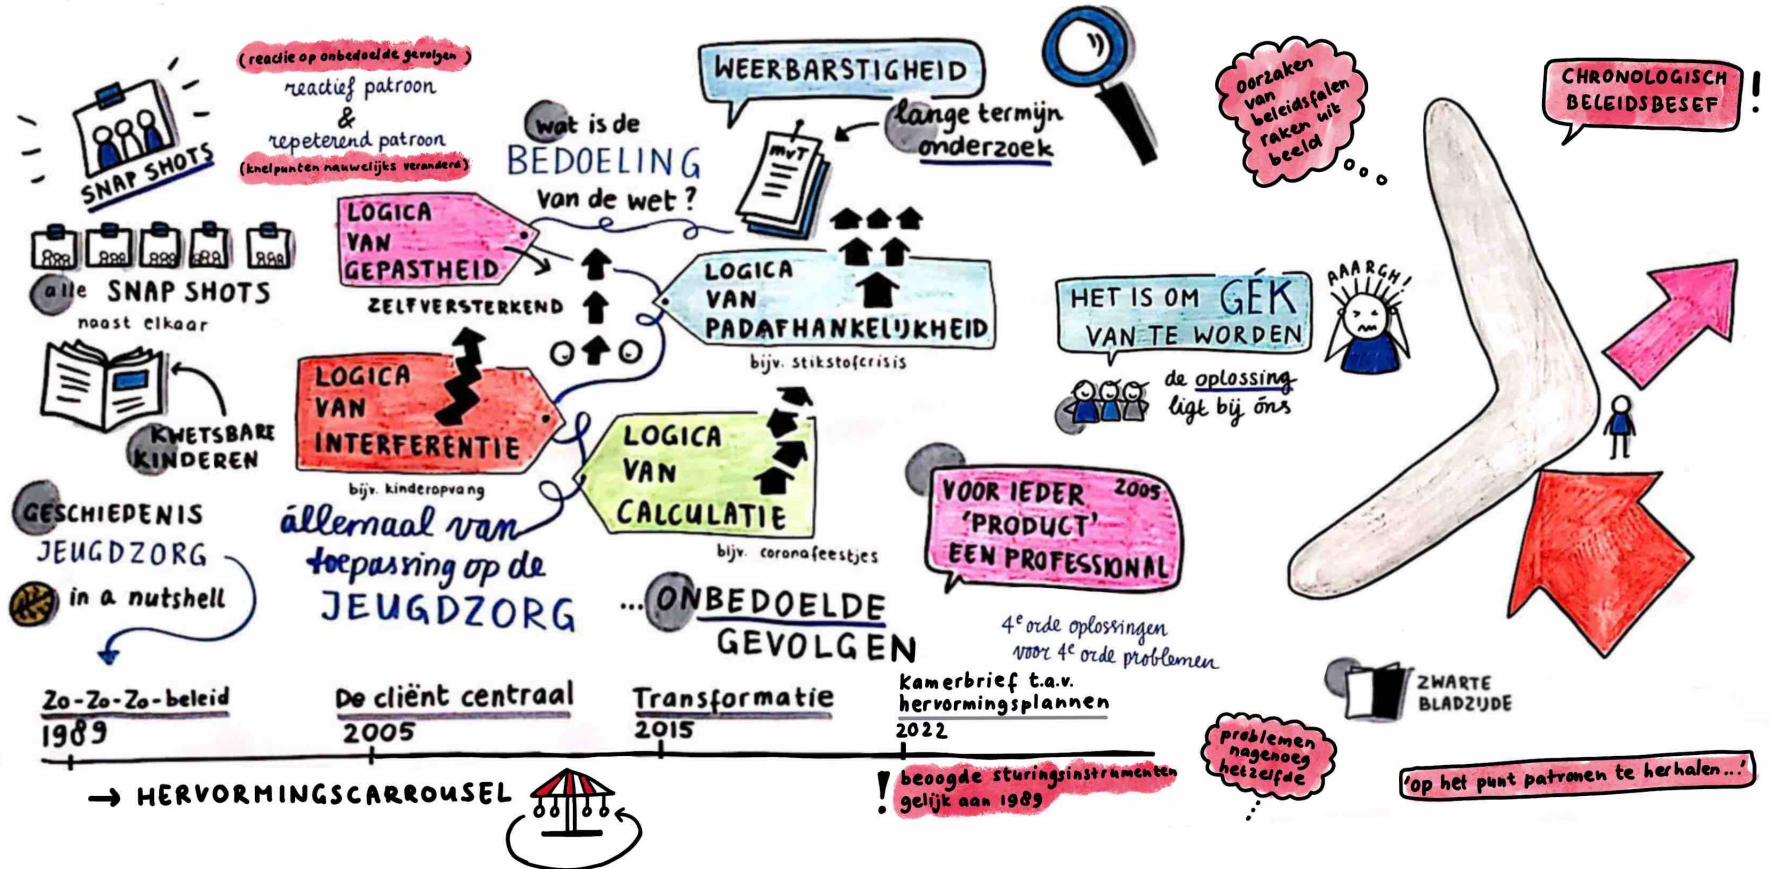 SNAP SHOTS
(reactie op onbedoelde gevolgen)
reactief patroon
&
repeterend patroon
(knelpunten nauwelijks veranderd)
alle SNAP SHOTS
naast elkaar
KWETSBARE
KINDEREN
GESCHIEDENIS
JEUGDZORG
in a nutshell
wat is de
BEDOELING
van de wet?
WEERBARSTIGHEID
mvT
lange termijn
onderzoek
LOGICA
VAN
GEPASTHEID
ZELFVERSTERKEND
LOGICA
VAN
PADAFHANKELIJKHEID
bijv. stikstofcrisis
LOGICA
VAN
INTERFERENTIE
bijv. kinderopvang
LOGICA
VAN
CALCULATIE
bijv. coronafeestjes
állemaal van
toepassing op de
JEUGDZORG
...ONBEDOELDE
GEVOLGEN
oorzaken
van
beleidsfalen
raken uit
beeld
CHRONOLOGISCH
BELEIDSBESEF
!
HET IS OM GÉK
VAN TE WORDEN
AAARGH!
de oplossing
ligt bij óns
VOOR IEDER 2005
'PRODUCT'
EEN PROFESSIONAL
4e orde oplossingen
voor 4e orde problemen
ZWARTE
BLADZIJDE
Zo-Zo-Zo-beleid
1989
De cliënt centraal
2005
Transformatie
2015
Kamerbrief t.a.v.
hervormingsplannen
2022
→ HERVORMINGSCARROUSEL
! beoogde sturingsinstrumenten
gelijk aan 1989
problemen
nagenoeg
hetzelfde
'op het punt patronen te herhalen...'